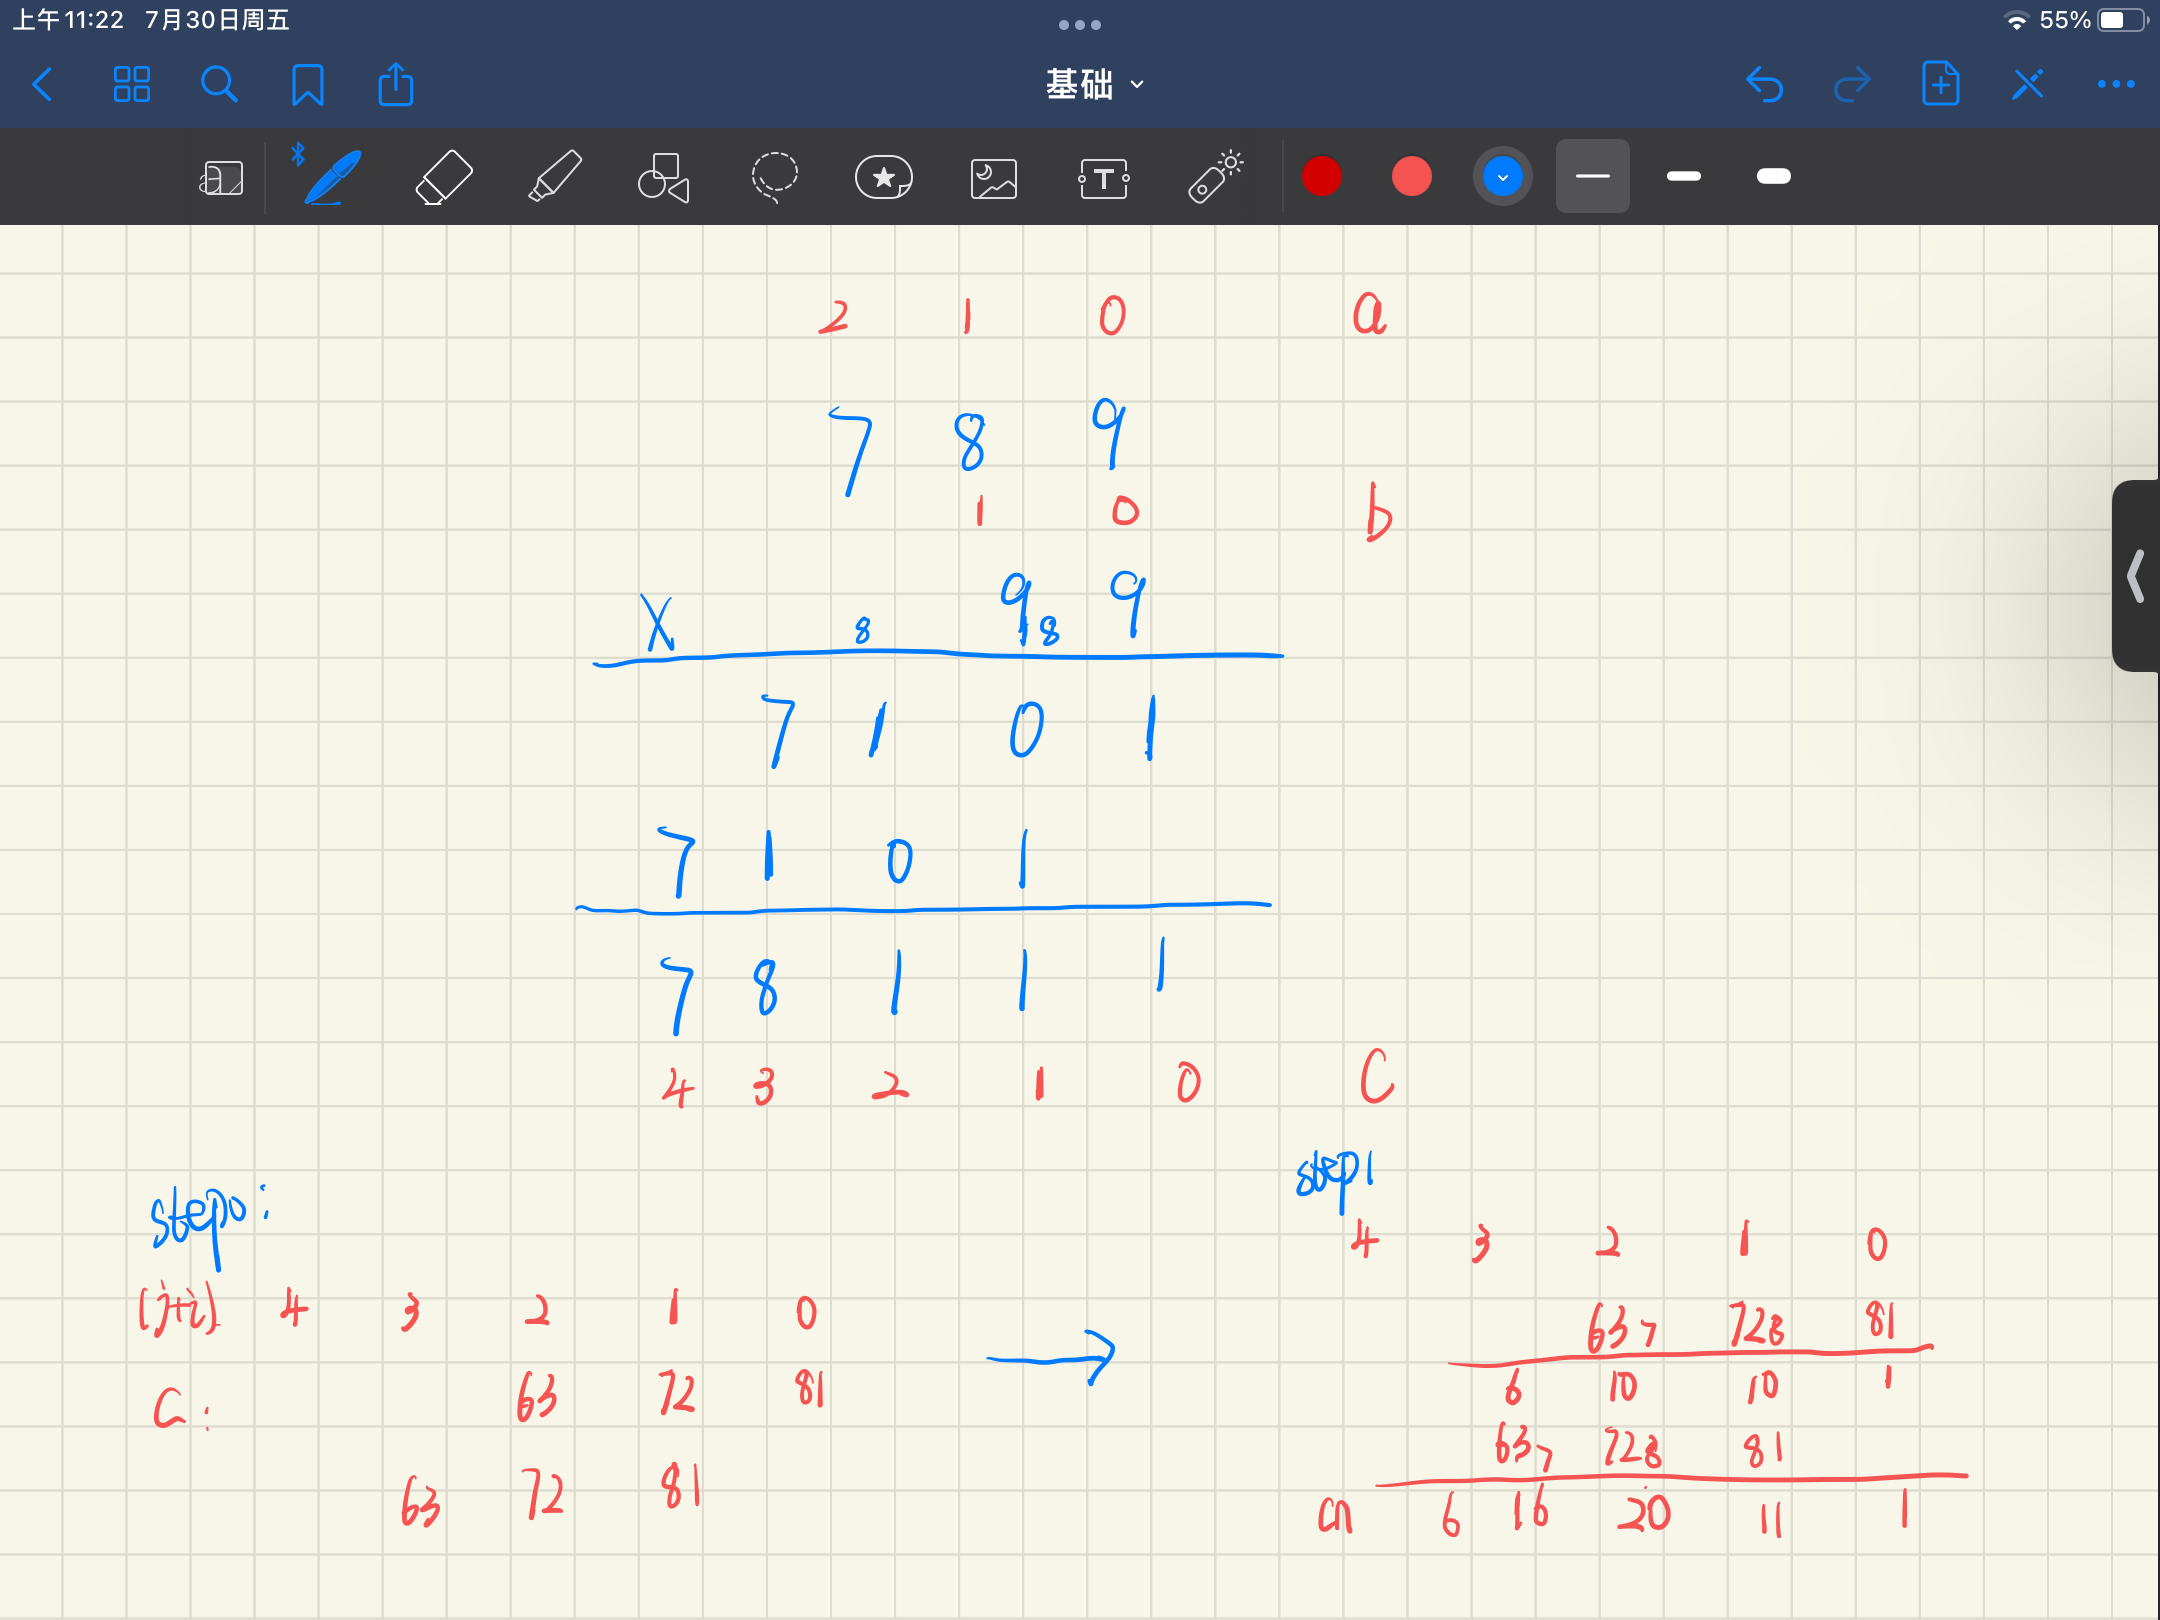 上午11:22 7月30日周五 55%
基础
T
2 1 0 a
7 8 9
1 0 b
X 9 9
8 8
7 1 0 1
7 1 0 1
7 8 1 1 1
4 3 2 1 0 C
step0:
(j+i) 4 3 2 1 0
C: 63 72 81
63 72 81
step1
4 3 2 1 0
63 7 72 8 81
6 10 10 1
63 7 72 8 81
6 16 20 11 1